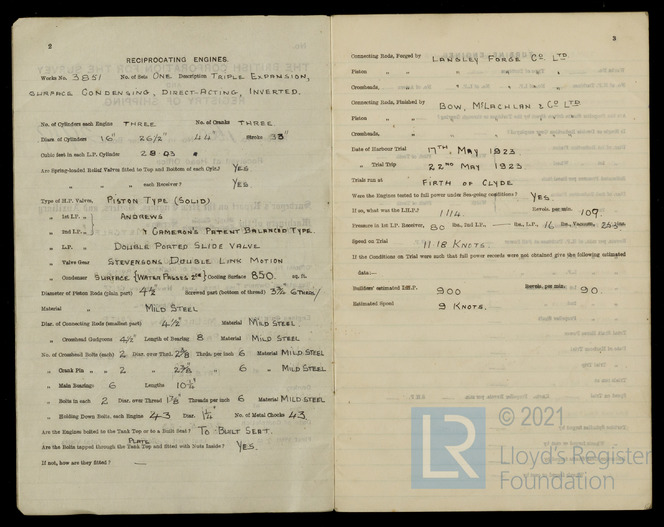 2
RECIPROCATING ENGINES.
Works No. 3851 No. of Sets ONE Description TRIPLE EXPANSION,
SURFACE CONDENSING, DIRECT-ACTING, INVERTED.
No. of Cylinders each Engine THREE No. of Cranks THREE
Diars of Cylinders 16" 26½" 44" Stroke 33"
Cubic feet in each L.P. Cylinder 29.03
Are Spring-loaded Relief Valves fitted to Top and Bottom of each Cylr.? YES
" " " each Receiver? YES.
Type of H.P. Valves, PISTON TYPE (SOLID)
" 1st I.P. " ANDREWS
" 2nd I.P. " & CAMERON'S PATENT BALANCED TYPE.
" L.P. " DOUBLE PORTED SLIDE VALVE
" Valve Gear STEVENSONS DOUBLE LINK MOTION
" Condenser SURFACE {WATER PASSES 2CE} Cooling Surface 850. sq. ft.
Diameter of Piston Rods (plain part) 4½" Screwed part (bottom of thread)
Material MILD STEEL
Diar. of Connecting Rods (smallest part) 4½" Material MILD STEEL.
" Crosshead Gudgeons 4½" Length of Bearing 8 Material MILD STEEL
No. of Crosshead Bolts (each) 2 Diar. over Thrd. 2⅜ Thrds. per inch 6 Material MILD STEEL
" Crank Pin " " 2 " 2⅜" " 6 " MILD STEEL
" Main Bearings 6 Lengths 10¼"
" Bolts in each 2 Diar. over Thread 1⅞" Threads per inch 6 Material MILD STEEL
" Holding Down Bolts, each Engine 43 Diar. 1¼" No. of Metal Chocks 43
Are the Engines bolted to the Tank Top or to a Built Seat? TO BUILT SEAT.
PLATE
Are the Bolts tapped through the Tank Top and fitted with Nuts Inside? YES.
If not, how are they fitted? —
3
Connecting Rods, Forged by LANGLEY FORGE CO. LTD.
Piston " " " " "
Crossheads, " " " "
Connecting Rods, Finished by BOW, McLACHLAN & CO LTD
Piston " " " " "
Crossheads, " " " "
Date of Harbour Trial 17TH, MAY 1923.
" Trial Trip 22ND MAY 1923.
Trials run at FIRTH OF CLYDE.
Were the Engines tested to full power under Sea-going conditions? YES.
If so, what was the I.H.P.? 1114. Revols. per min. 109.
Pressure in 1st I.P. Receiver, 80 lbs., 2nd I.P., — lbs., L.P. 16 lbs., Vacuum, 25 Ins.
Speed on Trial 11.18 KNOTS.
If the Conditions on Trial were such that full power records were not obtained give the following estimated
data:—
Builders' estimated I.H.P. 900 Revols. per min. 90.
Estimated Speed 9 KNOTS.
LR
© 2021
Lloyd's Register
Foundation